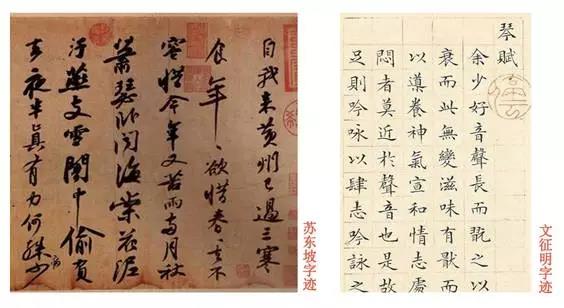 自我来黄州已過三寒
食年〻欲惜春〻去不
容惜今年又苦雨兩月秋
蕭瑟卧聞海棠花泥
汙燕支雪闇中偷負
去夜半真有力何殊少
苏东坡字迹
琴賦
余少好音聲長而翫之以
衰而此無變滋味有猒而
以導養神氣宣和情志處
悶者莫近於聲音也是故
足則吟咏以肆志吟詠之
文征明字迹